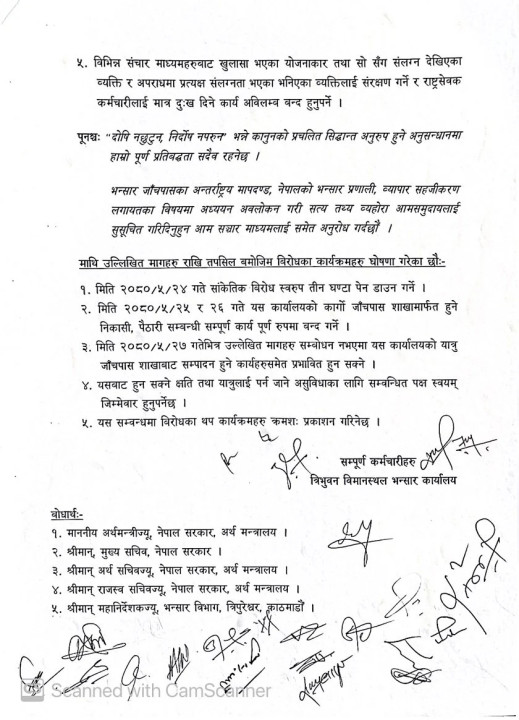 ५. विभिन्न संचार माध्यमहरुबाट खुलासा भएका योजनाकार तथा सो सँग संलग्न देखिएका
व्यक्ति र अपराधमा प्रत्यक्ष संलग्नता भएका भनिएका व्यक्तिलाई संरक्षण गर्ने र राष्ट्रसेवक
कर्मचारीलाई मात्र दुःख दिने कार्य अविलम्ब बन्द हुनुपर्ने ।
पूनश्चः "दोषि नछुटुन, निर्दोष नपरुन" भन्ने कानुनको प्रचलित सिद्धान्त अनुरुप हुने अनुसन्धानमा
हाम्रो पूर्ण प्रतिबद्धता सदैव रहनेछ ।
भन्सार जाँचपासका अन्तर्राष्ट्रिय मापदण्ड, नेपालको भन्सार प्रणाली, व्यापार सहजीकरण
लगायतका विषयमा अध्ययन अवलोकन गरी सत्य तथ्य व्यहोरा आमसमुदायलाई
सुसूचित गरिदिनुहुन आम सञ्चार माध्यमलाई समेत अनुरोध गर्दछौं ।
माथि उल्लिखित मागहरु राखि तपसिल बमोजिम विरोधका कार्यक्रमहरु घोषणा गरेका छौः-
१. मिति २०८०/५/२४ गते सांकेतिक विरोध स्वरुप तीन घण्टा पेन डाउन गर्ने ।
२. मिति २०८०/५/२५ र २६ गते यस कार्यालयको कार्गो जाँचपास शाखामार्फत हुने
निकासी, पैठारी सम्बन्धी सम्पूर्ण कार्य पूर्ण रुपमा बन्द गर्ने ।
३. मिति २०८०/५/२७ गतेभित्र उल्लेखित मागहरु सम्बोधन नभएमा यस कार्यालयको यात्रु
जाँचपास शाखाबाट सम्पादन हुने कार्यहरुसमेत प्रभावित हुन सक्ने ।
४. यसबाट हुन सक्ने क्षति तथा यात्रुलाई पर्न जाने असुविधाका लागि सम्बन्धित पक्ष स्वयम्
जिम्मेवार हुनुपर्नेछ ।
५. यस सम्बन्धमा विरोधका थप कार्यक्रमहरु क्रमशः प्रकाशन गरिनेछ ।
सम्पूर्ण कर्मचारीहरु
त्रिभुवन विमानस्थल भन्सार कार्यालय
बोधार्थः-
१. माननीय अर्थमन्त्रीज्यू, नेपाल सरकार, अर्थ मन्त्रालय ।
२. श्रीमान्, मुख्य सचिव, नेपाल सरकार ।
३. श्रीमान् अर्थ सचिवज्यू, नेपाल सरकार, अर्थ मन्त्रालय ।
४. श्रीमान् राजस्व सचिवज्यू, नेपाल सरकार, अर्थ मन्त्रालय ।
५. श्रीमान् महानिर्देशकज्यू, भन्सार विभाग, त्रिपुरेश्वर, काठमाडौं ।
CS Scanned with CamScanner